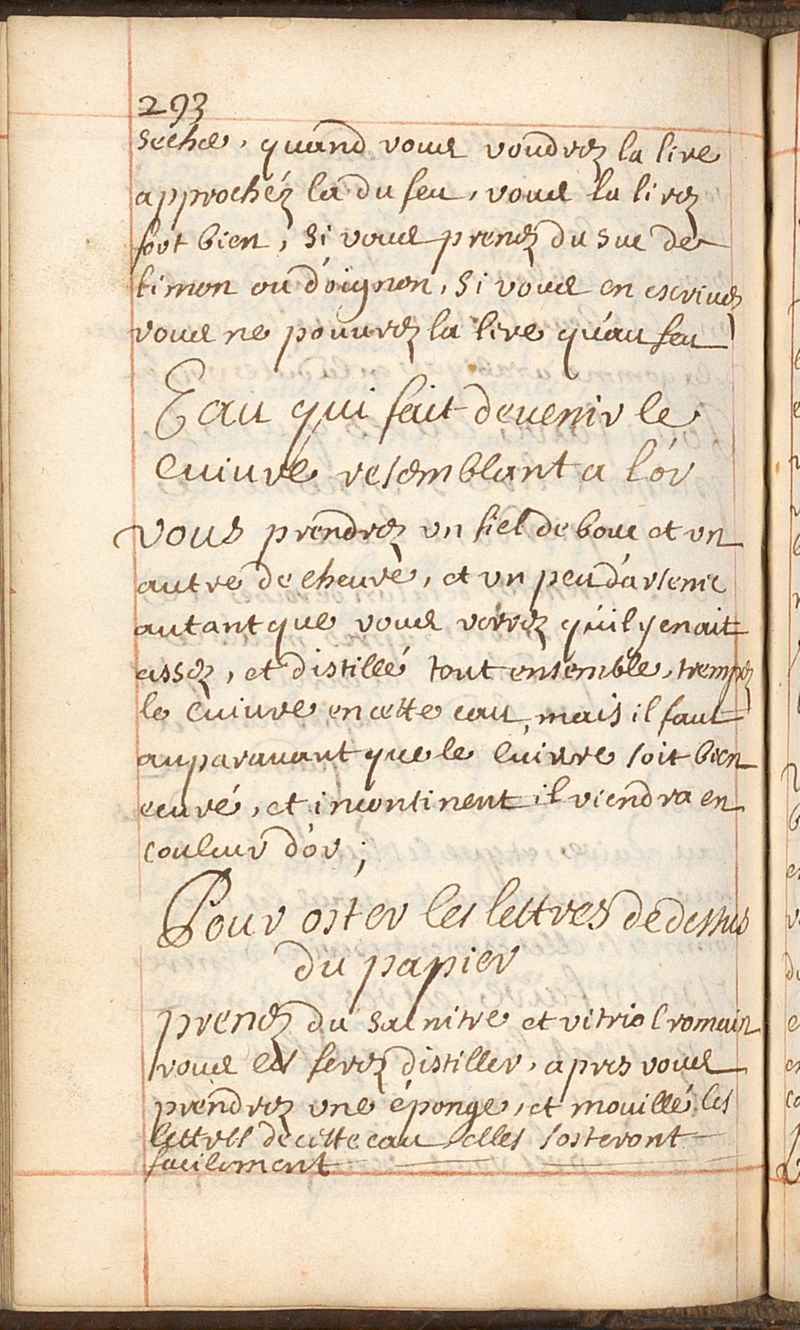 293
seche, quand vous voudrez la lire
approchéz la du feu, vous la lirez
fort bien, si vous prenez du suc de
limon ou d'oignon, si vous en escrivez
vous ne pouvrez la lire qu'au feu
Eau qui fait devenir le
cuivre resemblant a l'or
vous prendrez un fiel de bouc et un
autre de cheuvre, et un peu d'arsenic
autant que vous verrez qu'il y en ait
assez, et distillé tout ensemble, trempez
le cuivre en cette eau, mais il faut
auparavant que le cuivre soit bien
ecuré, et incontinent il viendra en
couleur d'or;
Pour oster les lettres de dessus
du papier
prenez du salnitre et vitriol romain
vous les ferez distiller, apres vous
prendrez une éponge, et mouillé les
lettres de cette eau elles s'osteront
facilement